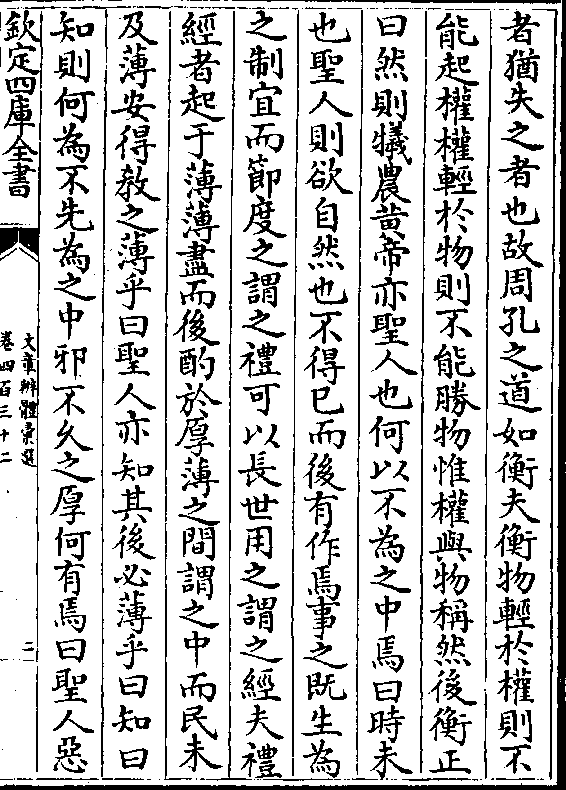 者猶失之者也故周孔之道如衡夫衡物輕於權則不
能起權權輕於物則不能勝物惟權與物稱然後衡正
曰然則犧農黃帝亦聖人也何以不為之中焉曰時未
也聖人則欲自然也不得已而後有作焉事之既生為
之制宜而節度之謂之禮可以長世用之謂之經夫禮
經者起于薄薄盡而後酌於厚薄之間謂之中而民未
及薄安得教之薄乎曰聖人亦知其後必薄乎曰知曰
知則何為不先為之中邪不久之厚何有焉曰聖人惡
欽定四庫全書
文章辨體彙選
卷四百三十二
二